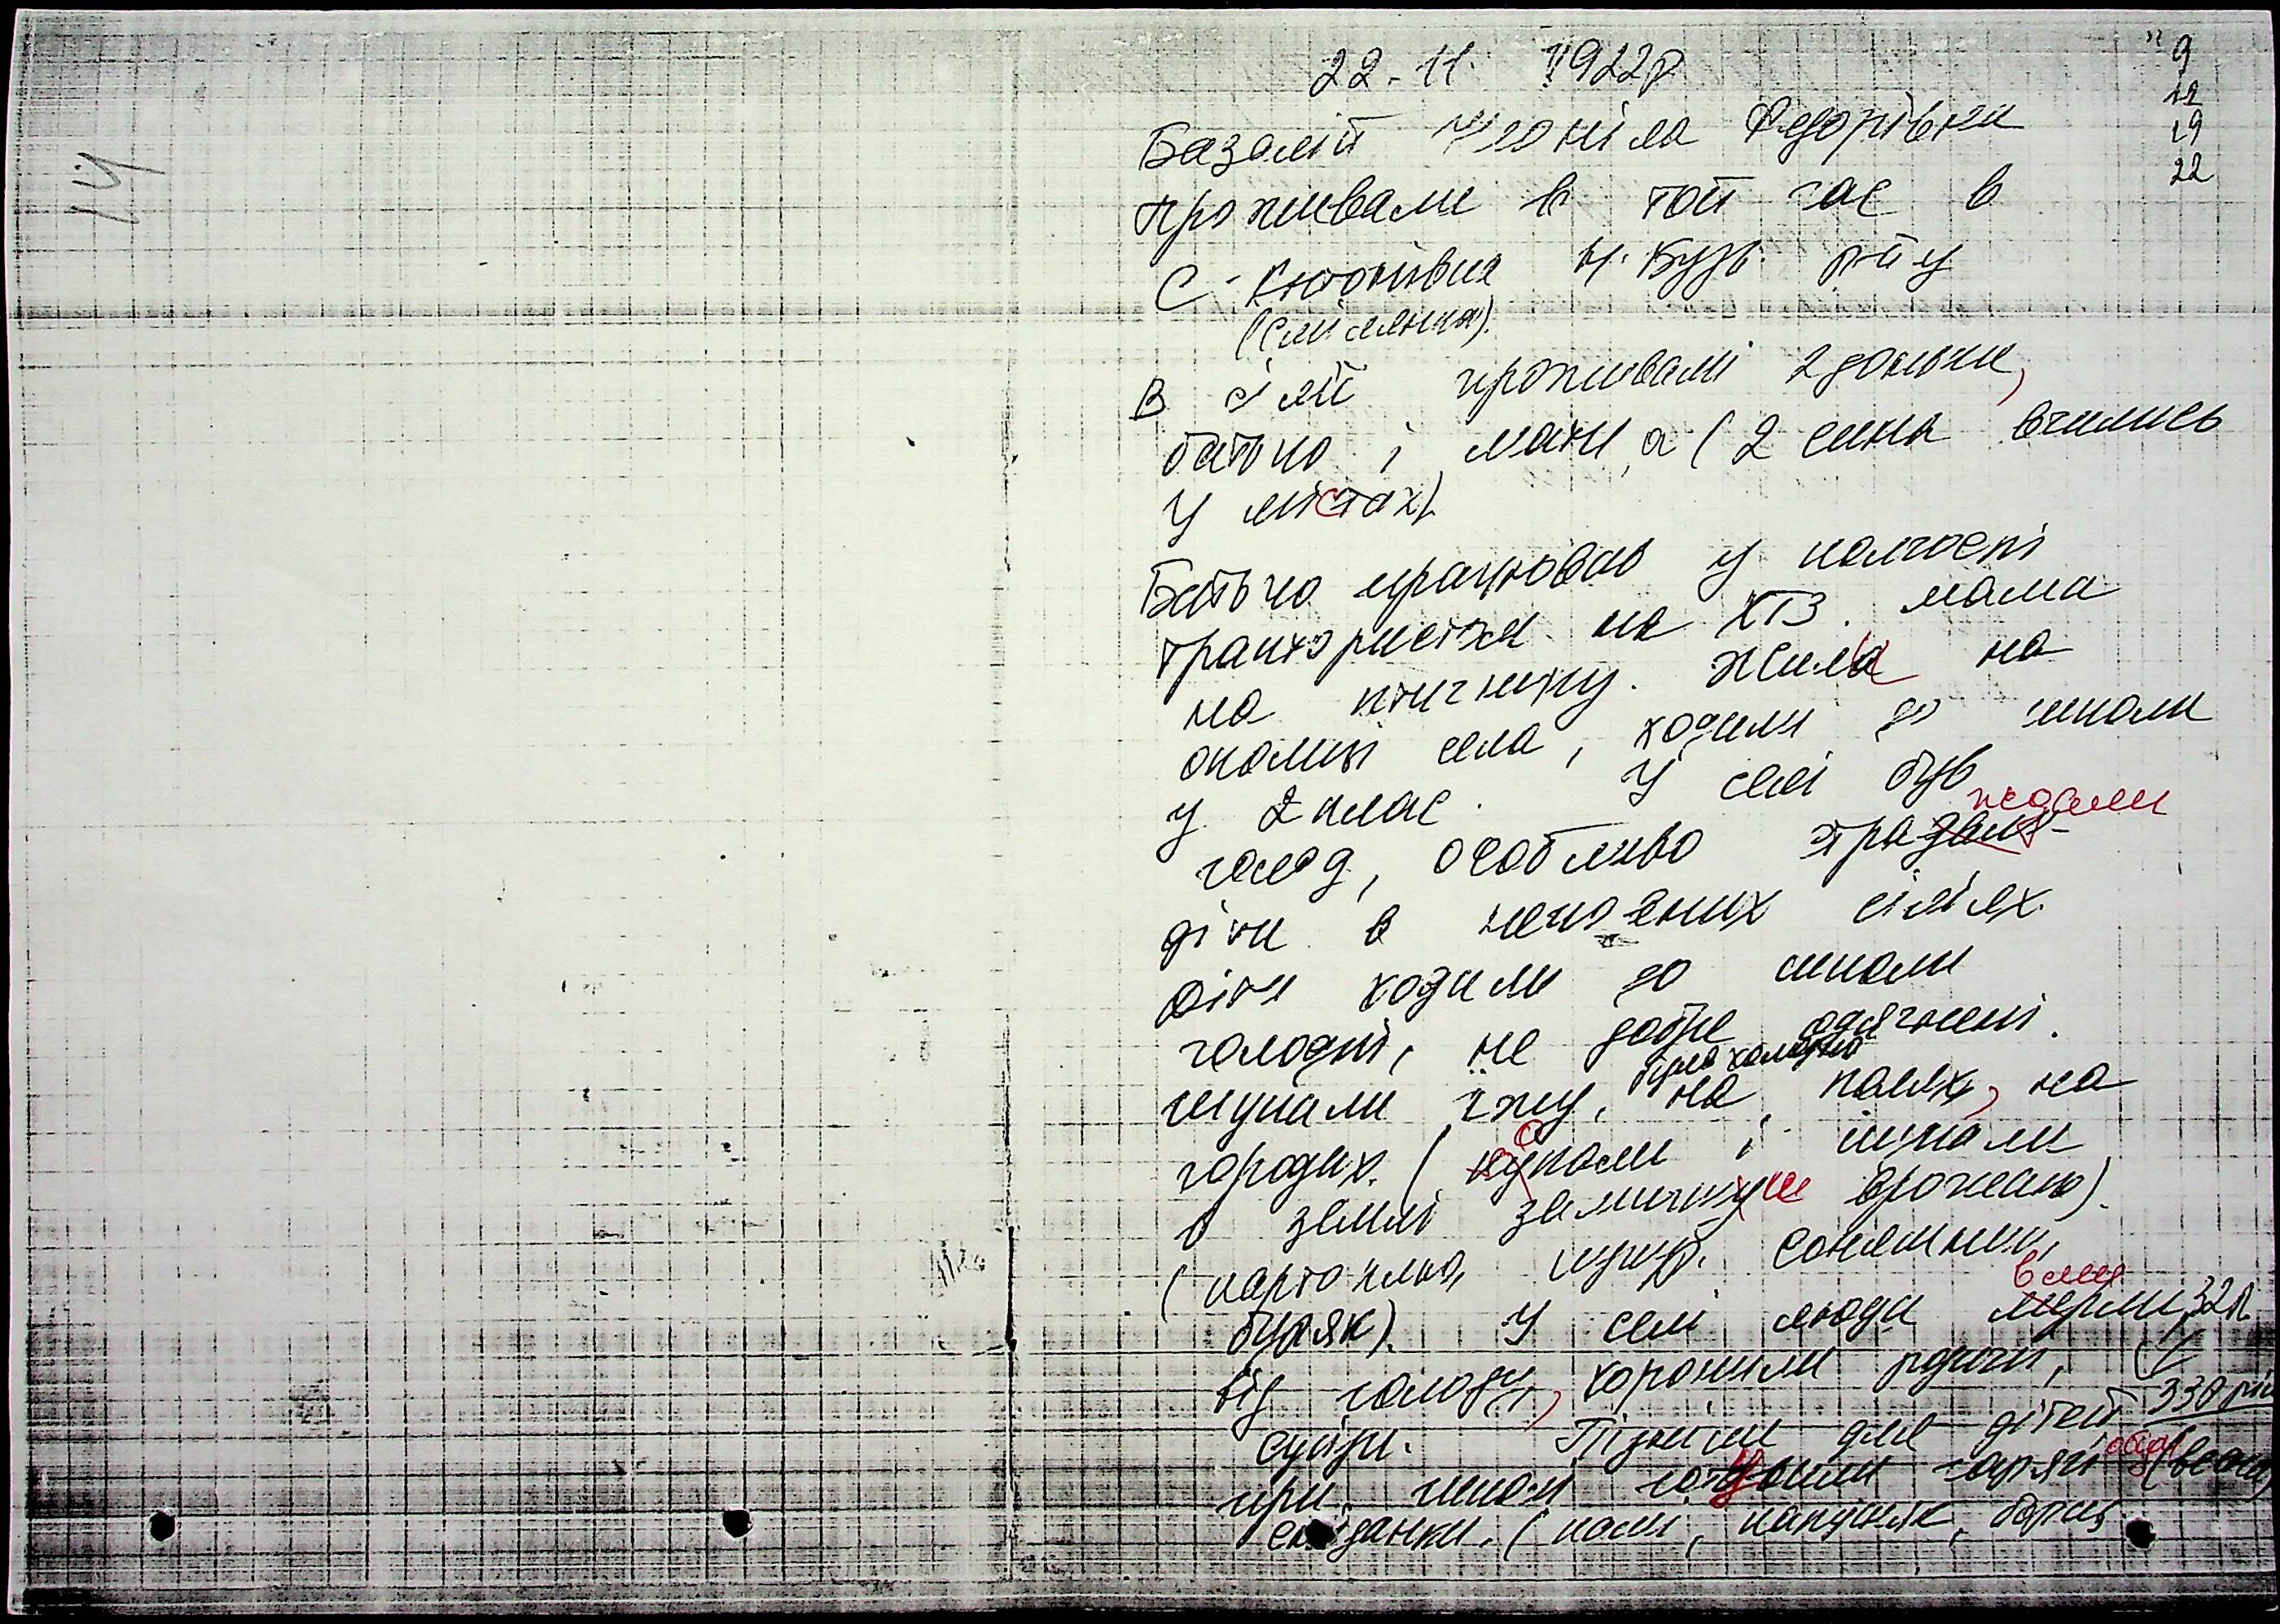 14
22-11 1922р
" 9
12
19
22
Базалій Неоніла Федорівна
проживали в той час в
С. Кютонівка Н. Бузь. р-ну
В сімї проживалі 2 доньки,
батько і мати, а ( 2 сина вчились
у містах).
Батько працював у колгоспі
трактористом на ХТЗ. мама
на птичнику. Жили на
околиці села, ходили до школи
у 2 клас. У селі був
голод, особливо страждали
діти в неповних сімїях.
Діти ходили до школи
голодні, не добре одягнені.
було холодно
шукали їжу, на полях, на
городах. ( копали і шукали
в землі залишки врожаю).
(картопля, цукр. соняшник,
буряк). У селі люди вмерли 32р
від голоду, хоронили родичі, (
сусіди. Пізніше для дітей 33й рік
при школі готували гарячі обіди (весна)
сніданки. ( каші, капусняк, борщ